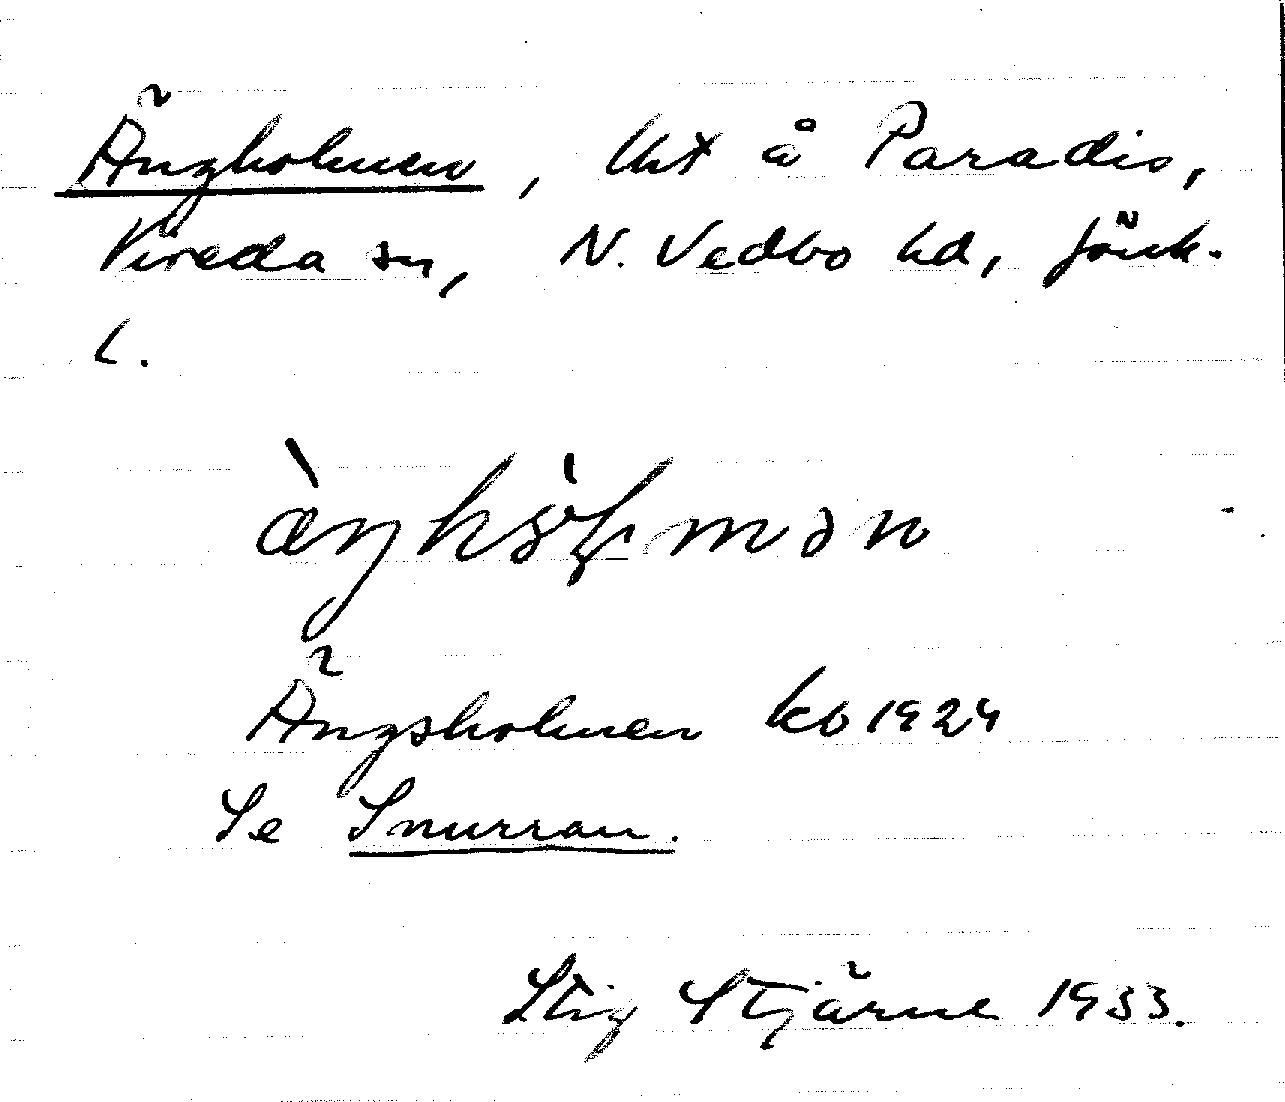 Ängholmen, lht å Paradis,
Vireda sn, N. Vedbo hd, Jönk.
l.
Ängsholmen kb 1924
Se Snurran.
Stig Stjärne 1933.